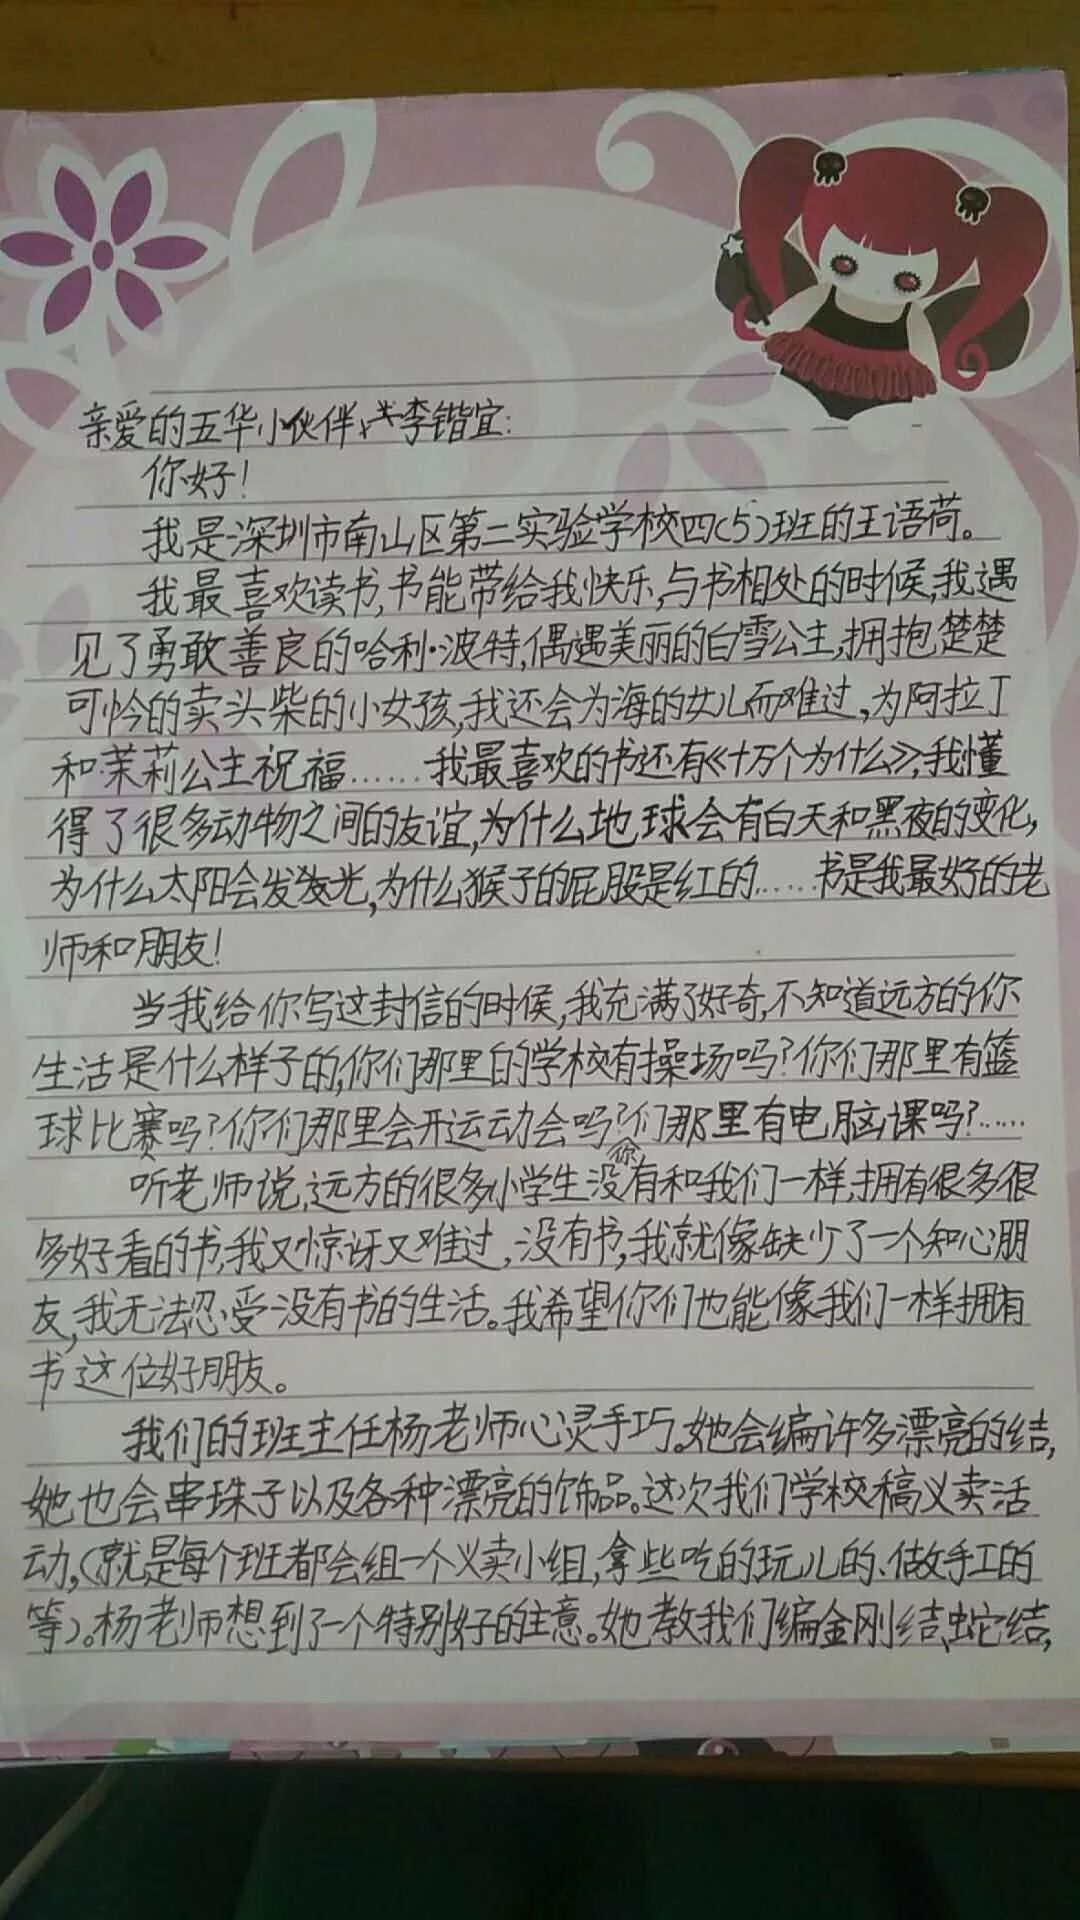 亲爱的五华小伙伴李锴宜:
你好!
我是深圳市南山区第二实验学校四(5)班的王语荷。
我最喜欢读书,书能带给我快乐,与书相处的时候,我遇
见了勇敢善良的哈利·波特,偶遇美丽的白雪公主,拥抱楚楚
可怜的卖火柴的小女孩,我还会为海的女儿而难过,为阿拉丁
和茉莉公主祝福……我最喜欢的书还有《十万个为什么》,我懂
得了很多动物之间的友谊,为什么地球会有白天和黑夜的变化,
为什么太阳会发光,为什么猴子的屁股是红的……书是我最好的老
师和朋友!
当我给你写这封信的时候,我充满了好奇,不知道远方的你
生活是什么样子的,你们那里的学校有操场吗?你们那里有篮
球比赛吗?你们那里会开运动会吗?你们那里有电脑课吗?……
听老师说,远方的很多小学生没有和我们一样,拥有很多很
多好看的书,我又惊讶又难过,没有书,我就像缺少了一个知心朋
友,我无法忍受没有书的生活。我希望你们也能像我们一样拥有
书这位好朋友。
我们的班主任杨老师心灵手巧。她会编许多漂亮的结,
她也会串珠子以及各种漂亮的饰品。这次我们学校搞义卖活
动,(就是每个班都会组一个义卖小组,拿些吃的玩儿的、做手工的
等)。杨老师想到了一个特别好的主意。她教我们编金刚结、蛇结,